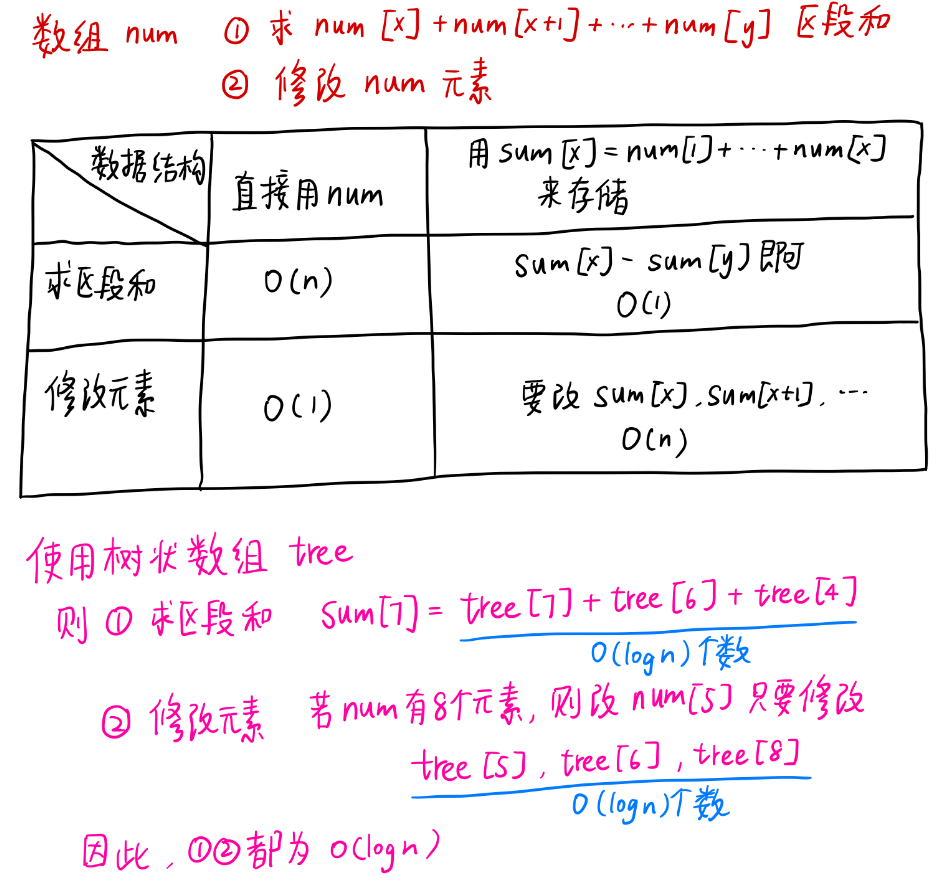 数组 num ① 求 num[x]+num[x+1]+…+num[y] 区段和
② 修改 num 元素
数据结构
直接用num
用 sum[x]=num[1]+…+num[x]
来存储
求区段和
O(n)
sum[x]-sum[y]即可
O(1)
修改元素
O(1)
要改 sum[x],sum[x+1],…
O(n)
使用树状数组 tree
则 ① 求区段和 sum[7]=tree[7]+tree[6]+tree[4]
O(logn)个数
② 修改元素 若num有8个元素,则改num[5]只要修改
tree[5],tree[6],tree[8]
O(logn)个数
因此,①②都为 O(logn)